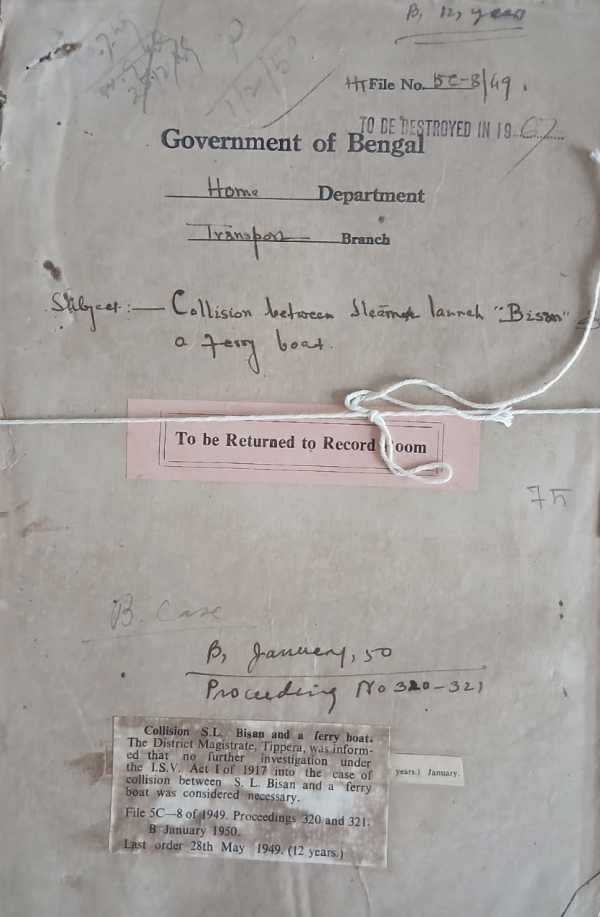 B, 12, years
File No. 5C-8/49.
TO BE DESTROYED IN 1967
Government of Bengal
Home Department
Transport Branch
Subject:— Collision between steamer launch "Bisan" &
a ferry boat.
To be Returned to Record oom
B. Case
B, January, 50
Proceeding No 320-321
Collision S.L. Bisan and a ferry boat.
The District Magistrate, Tippera, was inform-
ed that no further investigation under
the I.S.V. Act I of 1917 into the case of
collision between S. L. Bisan and a ferry
boat was considered necessary.
years.) January.
File 5C—8 of 1949. Proceedings 320 and 321.
B January 1950.
Last order 28th May 1949. (12 years.)